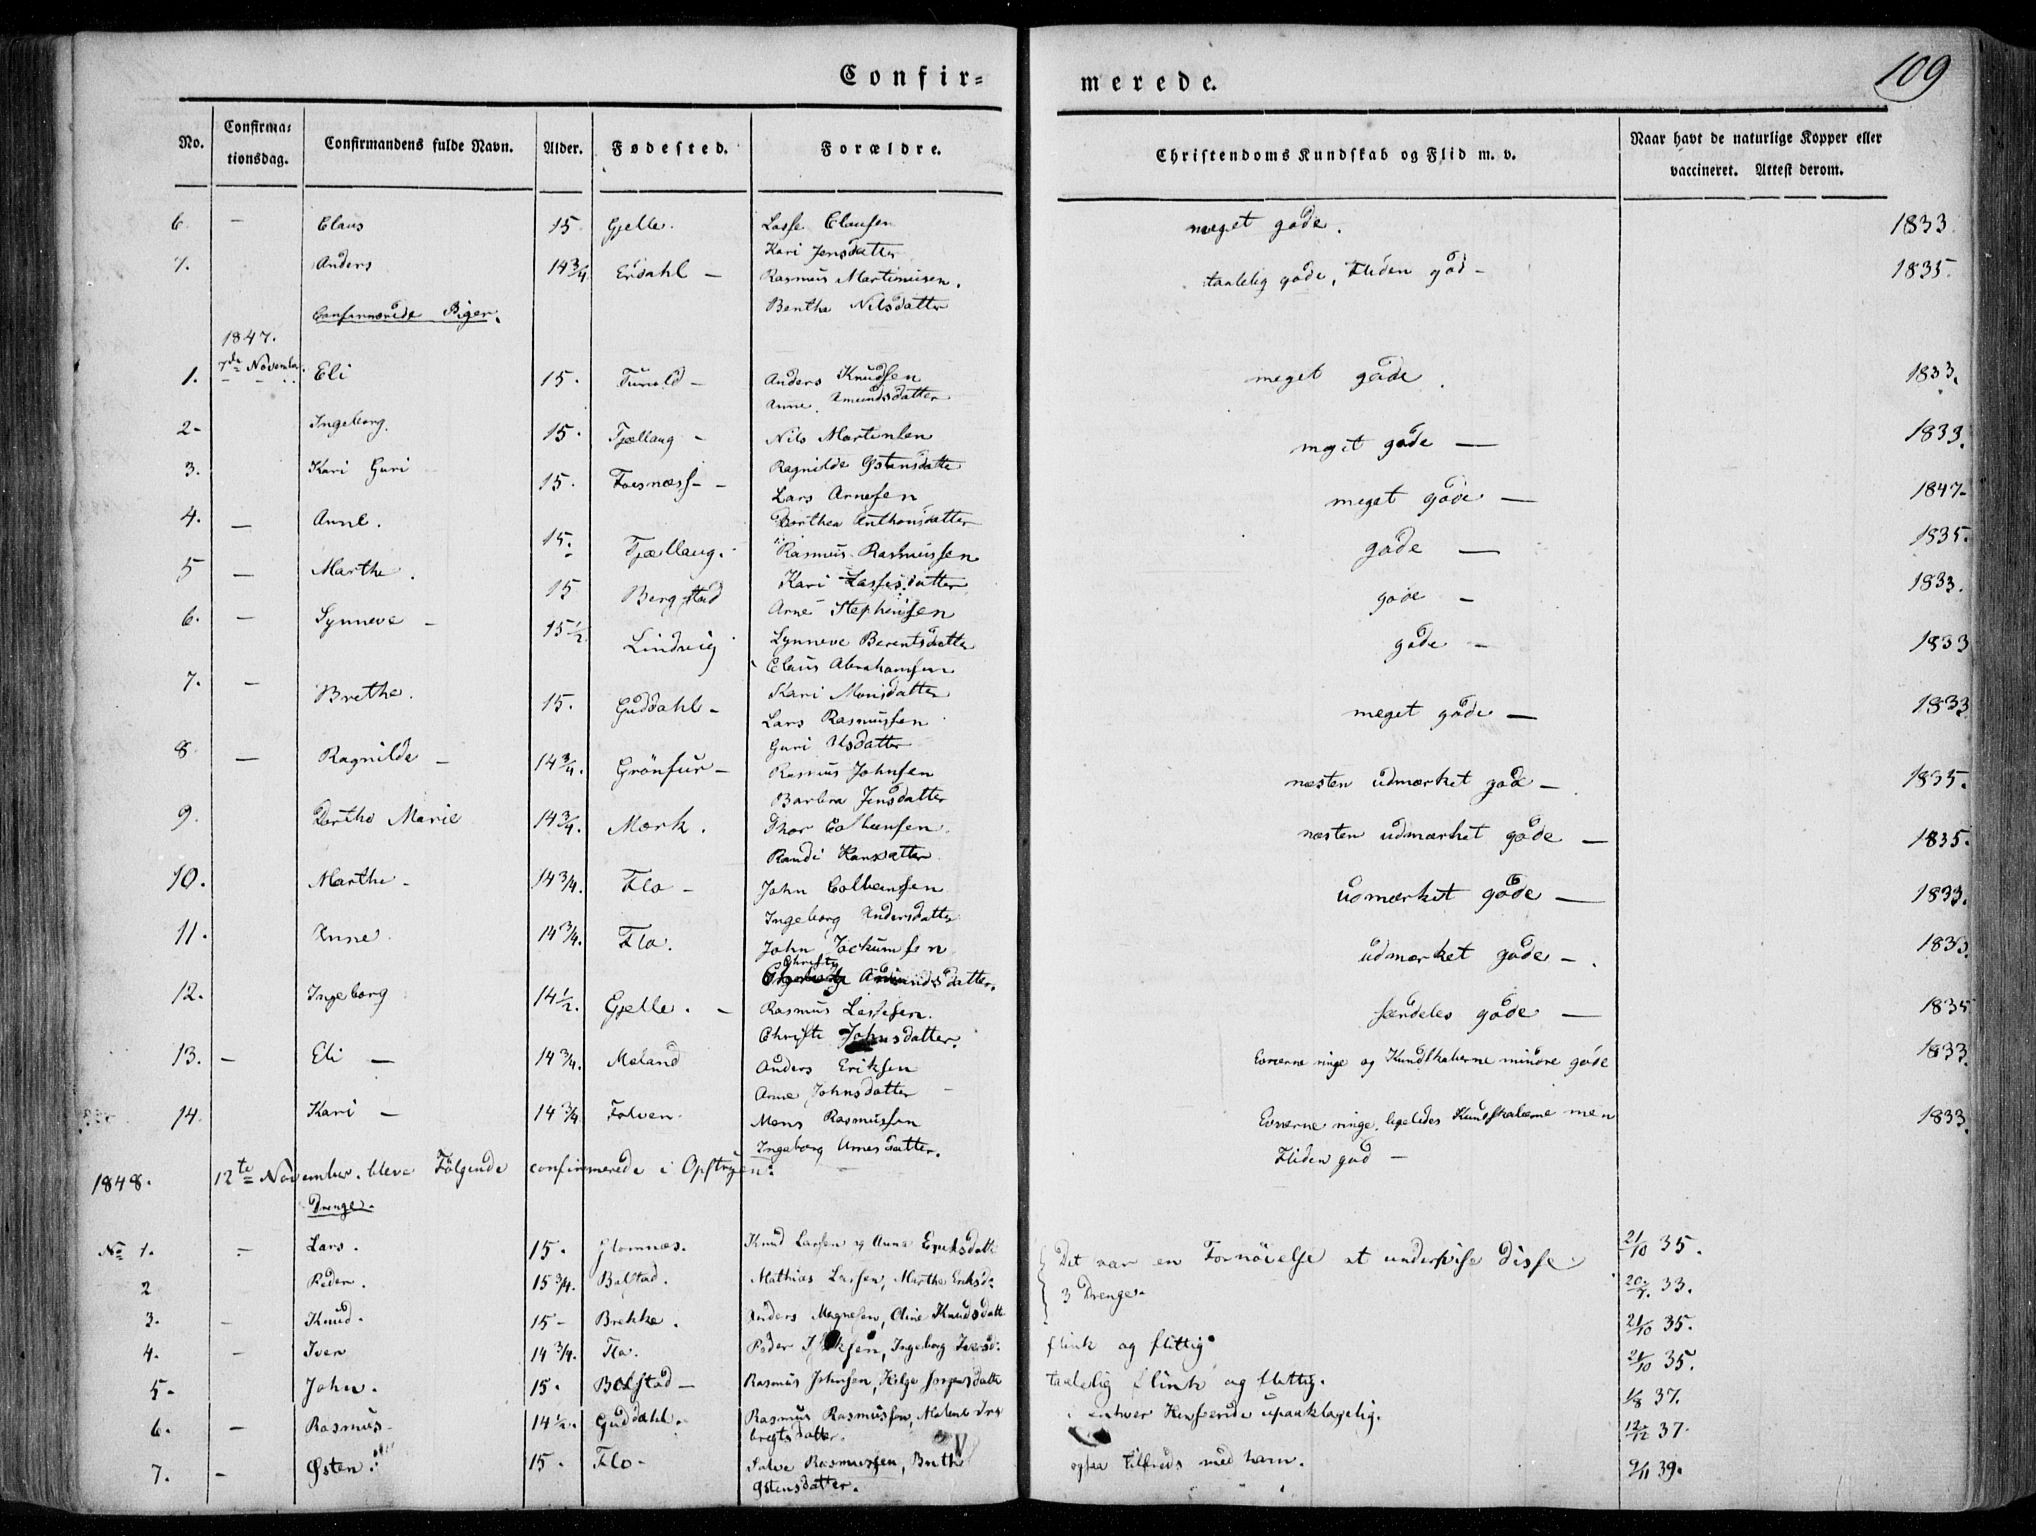 Confir=
merede.
109
No.
Confirma=
tionsdag.
Confirmandens fulde Navn.
Alder.
Fødested.
Forældre.
Christendoms Kundskab og Flid m. v.
Naar havt de naturlige Kopper eller
vaccineret. Attest derom.
6. — Claus 15 Gjelle. Lasse Clausen meget gode. 1833
Kari Jensdatter
7. Anders 14 3/4 Erdahl — Rasmus Martinusen. taalelig gode, Fliden god — 1835.
Benthe Nilsdatter
Confirmerede Piger.
1847.
1. 7de November Eli 15. Tunold — Anders Knudsen meget gode. 1833.
Anne Amundsdatter
2 — Ingeborg. 15. Tjellaug — Nils Martensen meget gode — 1833.
Ragnilde Østensdatter
3. Kari Guri 15. Fosnæss — Lars Arnesen meget gode — 1847 —
Dorthea Anthonsdatter
4. — Anne. 15. Tjellaug. Rasmus Rasmussen gode — 1835.
Kari Lassesdatter
5 — Marthe. 15 Bergstad Arne Stephensen gode — 1833.
Synneve Berentsdatter
6. — Synneve — 15 1/2. Lindvig Claus Abrahamsen gode — 1833
Kari Monsdatter
7. — Brethe. 15. Guddahl — Lars Rasmussen meget gode — 1833
Guri Olsdatter
8. — Ragnilde — 14 3/4. Grönfur — Rasmus Johnsen næsten udmærket gode — 1835.
Barbra Jensdatter
9. Dorthe Marie 14 3/4. Mork. Thor Colbensen næsten udmærket gode — 1835.
Randi Hansdatter
10. Marthe — 14 3/4. Flo — John Colbensen udmærket gode — 1833.
Ingeborg Andersdatter
11. Anne. 14 3/4. Flo. John Jockumsen udmærket gode —. 1833.
Christy
Amundsdatter.
12. Ingeborg 14 1/2. Gjelle. — Rasmus Lassesen. særdeles gode — 1835
Christi Johnsdatter.
13. — Eli — 14 3/4. Meland Anders Eriksen Evnerne ringe og Kundskaberne mindre gode 1833
Anne Johnsdatter —
14. Kari — 14 3/4 Folven. Mons Rasmussen Evnerne ringe, ligeledes Kundskaberne men 1833.
Ingeborg Arnesdatter. Fliden god —
1848. 12te November. bleve Følgende confirmerede i Opstryen:
Drenge.
No 1. — Lars. 15. Glomnæs. Knud Larsen og Anna Eriksdatte Det var en Fornöielse at undervise disse 21/10 35.
2 Peder. 15 3/4. Bolstad. Mathias Lassen, Marthe Eriksd: 3 Drenge. 20/7. 33.
3. — Knud. 15 — Brekke. Anders Magnesen, Oline Knudsdatt 21/10 35.
4. — Iver 14 3/4. Flo. Peder Iversd: flink og flittig. 21/10 35.
5. John. 15. Bolstad — Rasmus Johnsen, Helge Jorgensdatte taalelig flink og flittig. 1/8 37.
6. — Rasmus. 14 1/2. Guddahl. Rasmus Rasmussen, Malene Ing i enhver Henseende upaaklagelig. 12/12 37.
bregtsdatter.
7. — Østen. 15. Flo — Salve Rasmussen, Brithe ogsaa tilfreds med ham. 9/11 39.
Østensdatter.